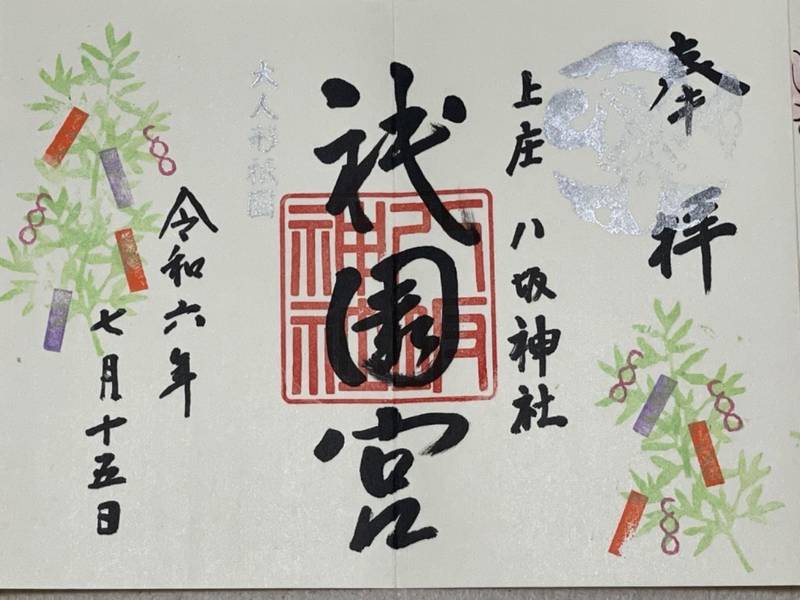 奉拝
上庄 八坂神社
祇園宮
八坂神社
大人形祇園
令和六年
七月十五日